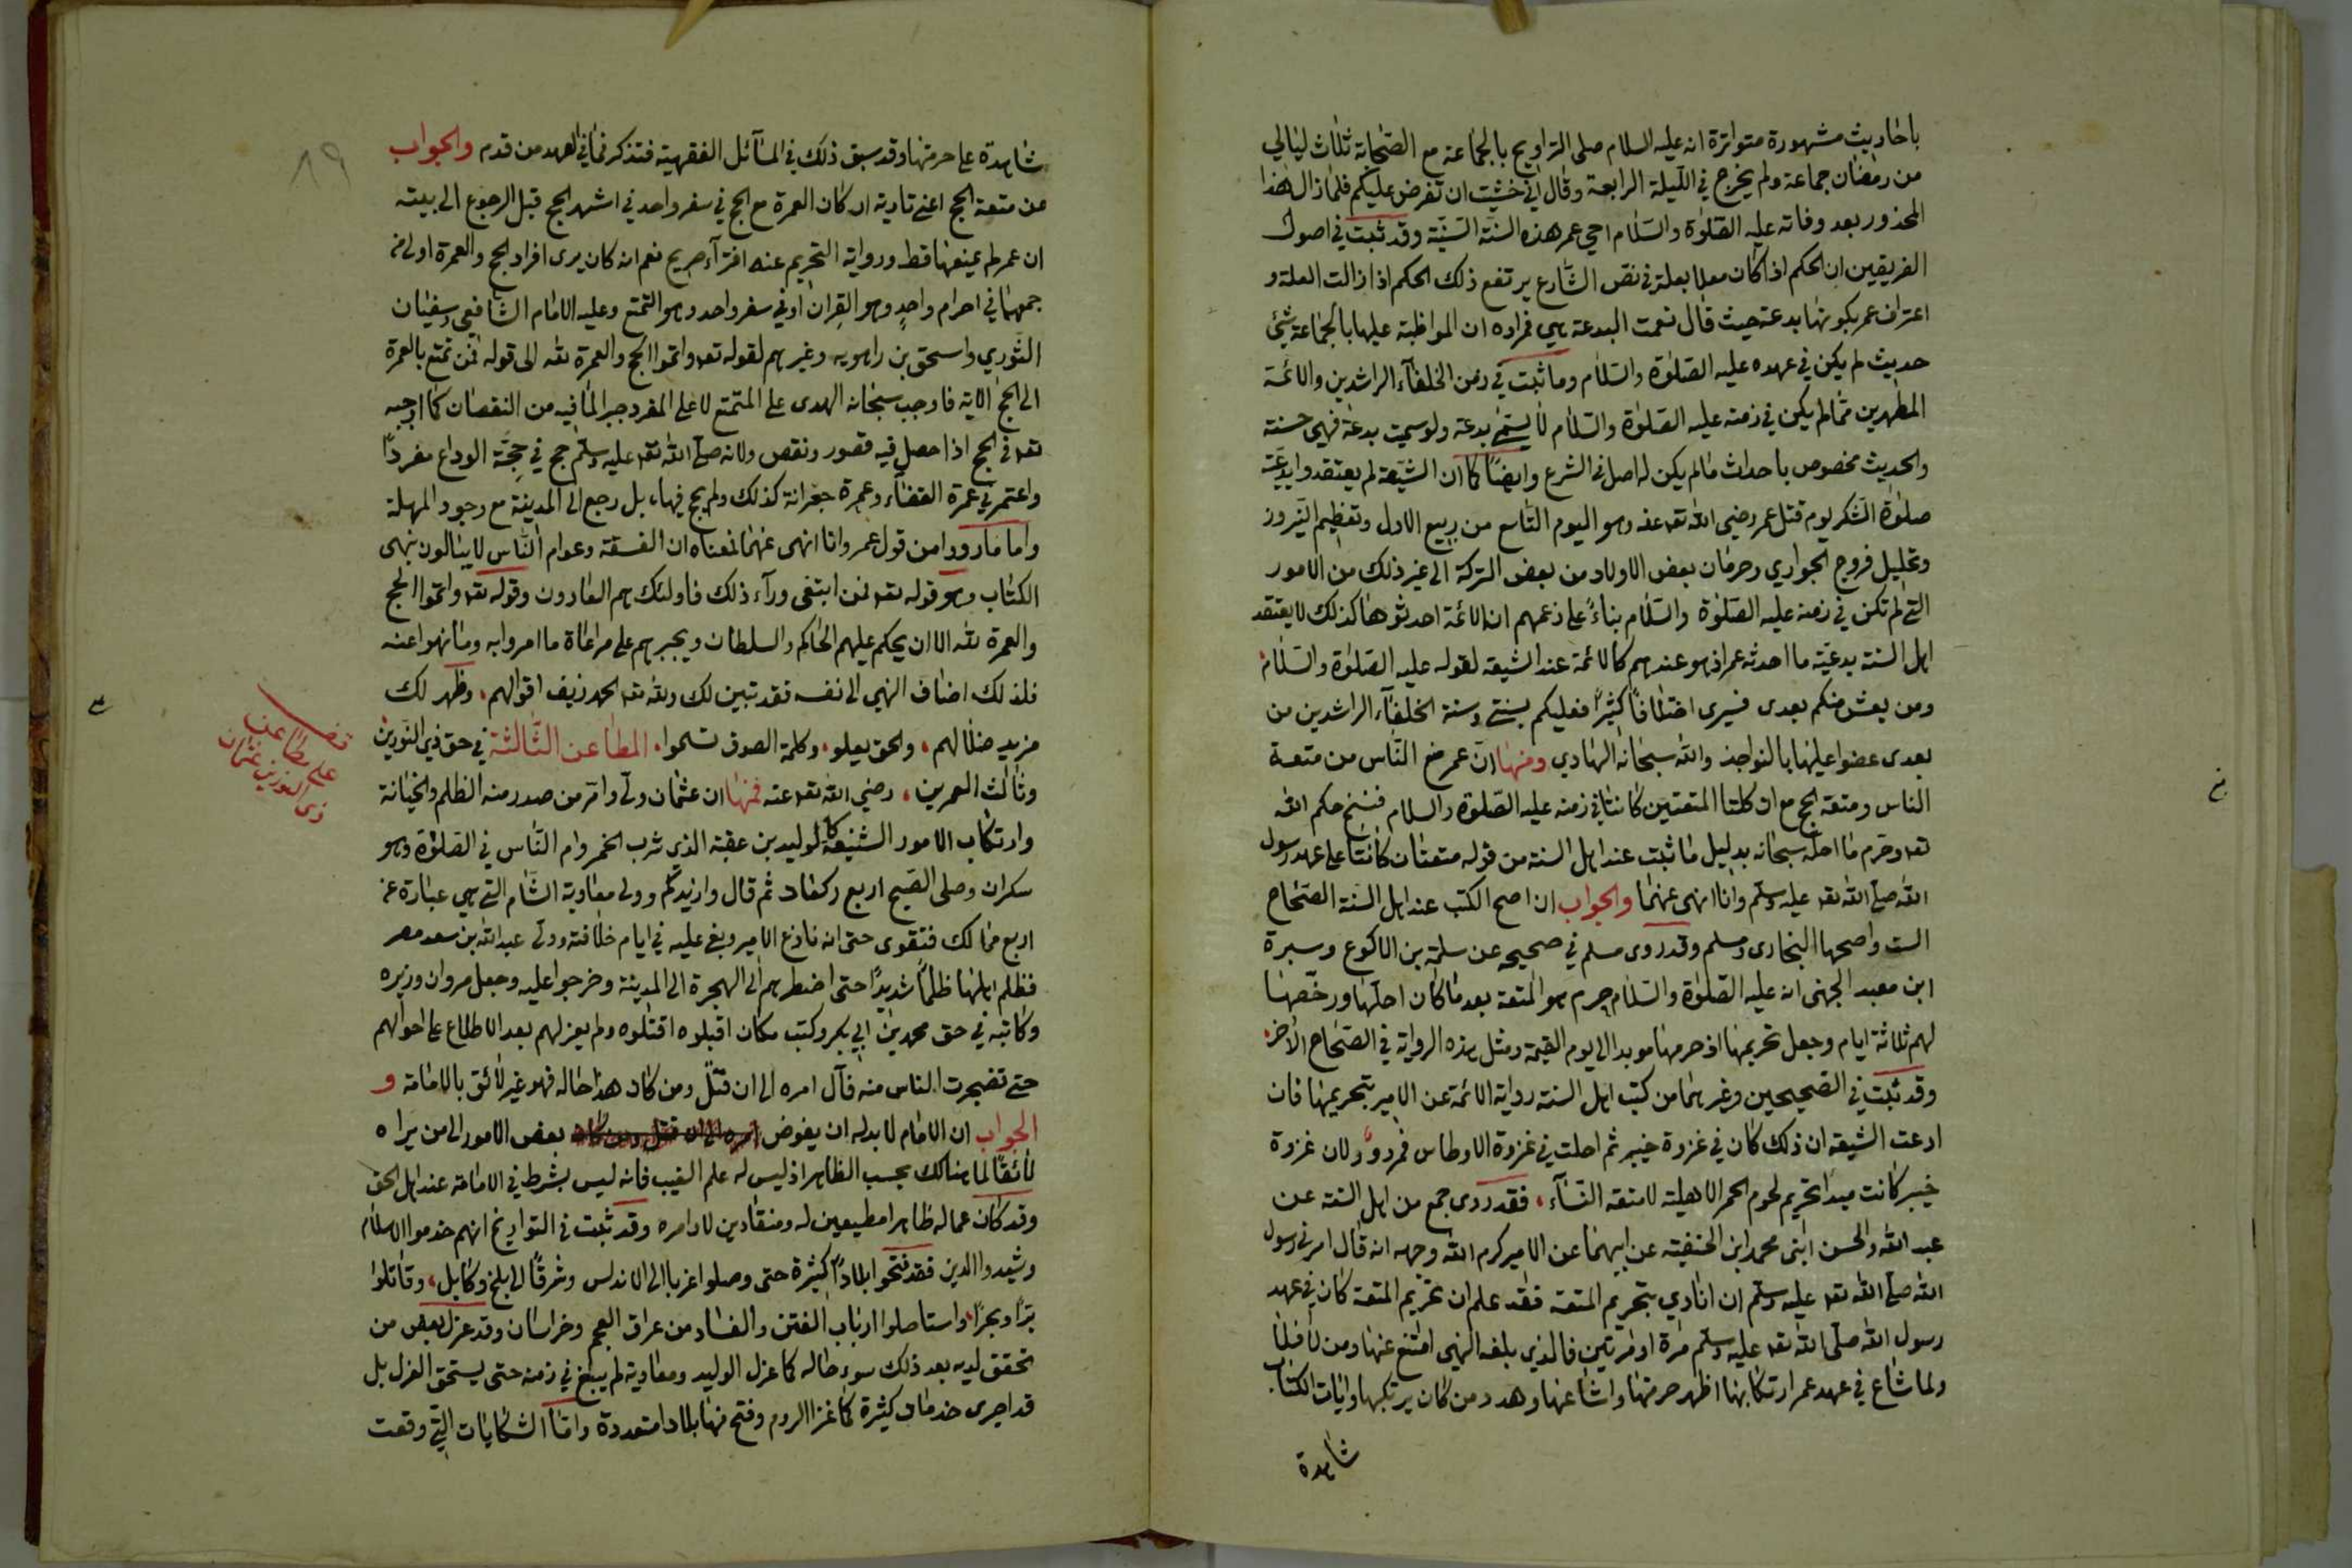 باحاديث مشهورة متواترة انه عليه السلام صلى التراويح بالجماعة مع الصحابة ثلاث ليالي
من رمضان جماعة ولم يخرج في الليلة الرابعة وقال اني خشيت ان تفرض عليكم فلما زال هذا
المحذور بعد وفاته عليه الصلوة والسلام احيى عمر هذه السنة السنية وقد ثبت في اصول
الفريقين ان الحكم اذا كان معللا بعلة في نص الشارع يرتفع ذلك الحكم اذا زالت العلة و
اعتراف عمر بكونها بدعة حيث قال نعمت البدعة هي فمراده ان المواظبة عليها بالجماعة شئ
حديث لم يكن في عهده عليه الصلوة والسلام وما ثبت في زمن الخلفآء الراشدين والائمة
المطهرين مما لم يكن في زمنه عليه الصلوة والسلام لا يسمى بدعة ولو سميت بدعة فهي حسنة
والحديث مخصوص باحداث ما لم يكن له اصل في الشرع وايضا كما ان الشيعة لم يعتقدوا بدعية
صلوة الشكر يوم قتل عمر رضي الله تعه عنه وهو اليوم التاسع من ربيع الاول وتعظيم النيروز
وتحليل فروج الجواري وحرمان بعض الاولاد من بعض التركة الى غير ذلك من الامور
التي لم تكن في زمنه عليه الصلوة والسلام بناءً على زعمهم ان الائمة احدثوها كذلك لا يعتقد
اهل السنة بدعية ما احدثه عمر اذ هو عندهم كالائمة عند الشيعة لقوله عليه الصلوة والسلام
ومن يعش منكم بعدى فسيرى اختلافًا كثيرًا فعليكم بسنتي وسنة الخلفآء الراشدين من
بعدى عضوا عليها بالنواجذ والله سبحانه الهادي ومنها ان عمر منع الناس من متعة
الناس ومتعة الحج مع ان كلتا المتعتين كانتا في زمنه عليه الصلوة والسلام فنسخ حكم الله
تعه وحرم ما احله سبحانه بدليل ما ثبت عند اهل السنة من قوله متعتان كانتا على عهد رسول
الله صلى الله تعه عليه وسلم وانا انهى عنهما والجواب ان اصح الكتب عند اهل السنة الصحاح
الست واصحها البخارى ومسلم وقد روى مسلم في صحيحه عن سلمة بن الاكوع وسبرة
ابن معبد الجهنى انه عليه الصلوة والسلام حرم هو المتعة بعد ما كان احلها ورخصها
لهم ثلاثة ايام وجعل تحريمها اذ حرمها مؤبدا الى يوم القيمة ومثل هذه الرواية في الصحاح الاخر
وقد ثبت في الصحيحين وغيرهما من كتب اهل السنة رواية الائمة عن الامير بتحريمها فان
ادعت الشيعة ان ذلك كان في غزوة خيبر ثم احلت في غزوة الاوطاس فمردود لان غزوة
خيبر كانت مبدا تحريم لحوم الحمر الاهلية لا متعة النسآء فقد روى جمع من اهل السنة عن
عبد الله والحسن ابنى محمد ابن الحنفية عن ابيهما عن الامير كرم الله وجهه انه قال امرني رسول
الله صلى الله تعه عليه وسلم ان انادي بتحريم المتعة فقد علم ان تحريم المتعة كان في عهد
رسول الله صلى الله تعه عليه وسلم مرة او مرتين فالذي بلغه النهى امتنع عنها ومن لا فلا
ولما شاع في عهد عمر ارتكابها اظهر حرمتها واشاعها وهدد من كان يرتكبها وايات الكتاب
شاهدة
٨٩
شاهدة على حرمتها وقد سبق ذلك في المسآئل الفقهية فتذكر فما في العهد من قدم والجواب
عن متعة الحج اعنى تادية اركان العمرة مع الحج في سفر واحد في اشهر الحج قبل الرجوع الى بيته
ان عمر لم يمنعها قط ورواية التحريم عنه افترآء صريح نعم انه كان يرى افراد الحج والعمرة اولى من
جمعهما في احرام واحدٍ وهو القِران او في سفر واحد وهو التمتع وعليه الامام الشافعي وسفيان
الثوري واسحق بن راهويه وغيرهم لقوله تعه واتموا الحج والعمرة لله الى قوله فمن تمتع بالعمرة
الى الحج الاية فاوجب سبحانه الهدى على المتمتع لا على المفرد جبرا لما فيه من النقصان كما اوجبه
تعه في الحج اذا حصل فيه قصور ونقص ولانه صلى الله تعه عليه وسلم حج في حِجّة الوداع مفردًا
واعتمر في عمرة القضآء وعمرة جعرانة كذلك ولم يحج فيها بل رجع الى المدينة مع وجود المهلة
واما ما رووا من قول عمر وانا انهى عنهما فمعناه ان الفسقة وعوام الناس لا يبالون بنهى
الكتاب وهو قوله تعه فمن ابتغى ورآء ذلك فاولئك هم العادون وقوله تعه واتموا الحج
والعمرة لله الا ان يحكم عليهم الحاكم والسلطان ويجبرهم على مراعاة ما امروا به وما نهوا عنه
فلذلك اضاف النهي الى نفسه فقد تبين لك ولله تعه الحمد زيف اقوالهم وظهر لك
مزيد ضلالهم والحق يعلو وكلمة الصدق تسموا المطاعن الثالثة في حق ذي النورين
وثالث العمرين رضي الله تعه عنه فمنها ان عثمان ولّى وامّر من صدر منه الظلم والخيانة
وارتكاب الامور الشنيعة كالوليد بن عقبة الذي شرب الخمر وام الناس في الصلوة وهو
سكران وصلى الصبح اربع ركعات ثم قال وازيدكم وولى معاوية الشام التي هي عبارة عن
اربع ممالك فتقوى حتى انه نازع الامير وبغى عليه في ايام خلافته وولى عبد الله بن سعد مصر
فظلم اهلها ظلمًا شديدًا حتى اضطرهم الى الهجرة الى المدينة وخرجوا عليه وجعل مروان وزيره
وكاتبه في حق محمد بن ابي بكر وكتب مكان اقبلوه اقتلوه ولم يعزلهم بعد الاطلاع على احوالهم
حتى تضجرت الناس منه فآل امره الى ان قتل ومن كان هذا حاله فهو غير لائق بالامامة و
الجواب ان الامام لا بد له ان يفوض بعض الامور الى من يراه
لائقًا لما هنالك بحسب الظاهر اذ ليس له علم الغيب فانه ليس بشرط في الامامة عند اهل الحق
وقد كان عماله ظاهرا مطيعين له ومنقادين لاوامره وقد ثبت في التواريخ انهم خدموا الاسلام
وشيدوا الدين فقد فتحوا بلادًا كثيرة حتى وصلوا غربا الى الاندلس وشرقًا الى بلخ وكابل وقاتلوا
برًا وبحرًا واستاصلوا ارباب الفتن والفساد من عراق العجم وخراسان وقد عزل بعض من
تحقق لديه بعد ذلك سوء حاله كما عزل الوليد ومعاوية لم يبغ في زمنه حتى يستحق العزل بل
قد اجرى خدمات كثيرة كما غزا الروم وفتح منها بلادا متعددة واما الشكايات التي وقعت
مطاعن
على
ذى النورين عثمان